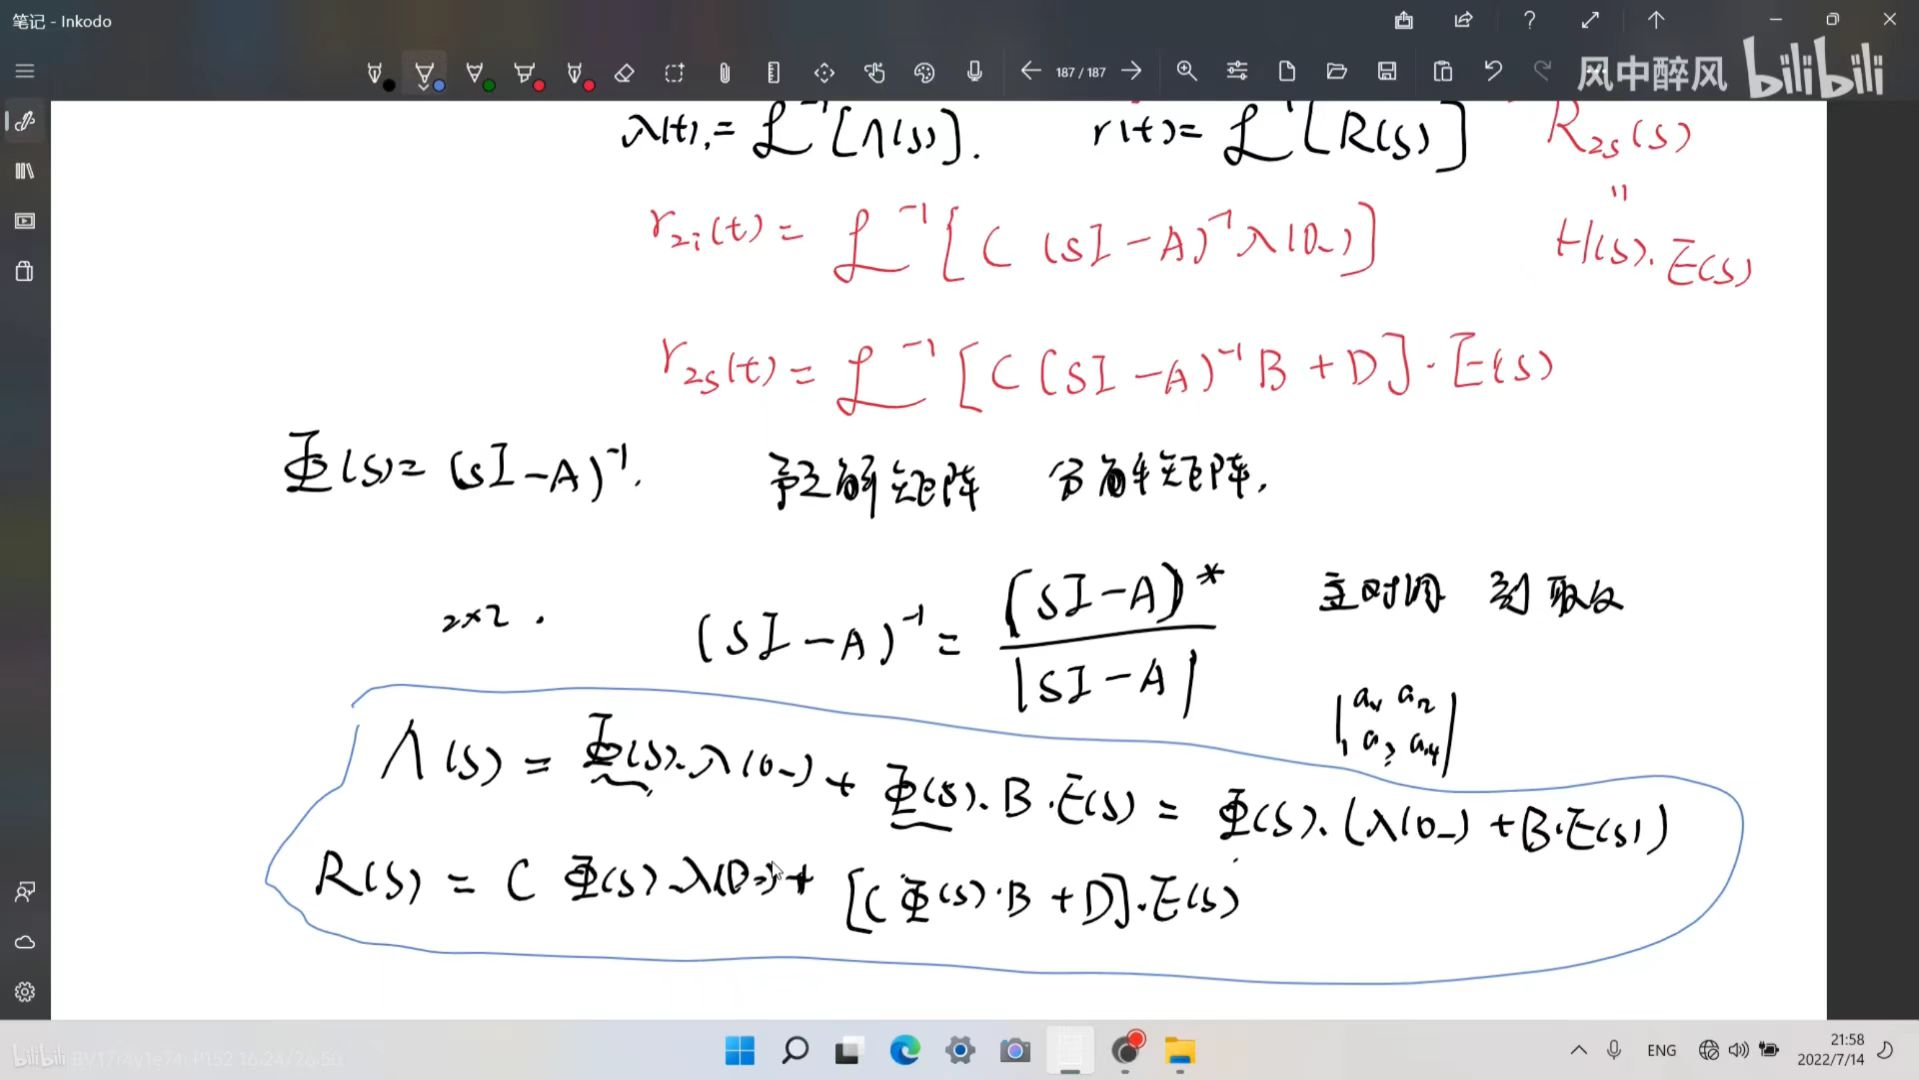 笔记 - Inkodo
187 / 187
风中醉风 bilibili
λ(t) = ℒ⁻¹[Λ(s)]. r(t) = ℒ⁻¹[R(s)] R₂ₛ(s)
"
r₂ᵢ(t) = ℒ⁻¹[C (sI-A)⁻¹λ(0₋)] H(s).E(s)
r₂ₛ(t) = ℒ⁻¹[C(sI-A)⁻¹B+D]·E(s)
Φ(s) = (sI-A)⁻¹. 予解矩阵 分解矩阵.
2×2. (sI-A)⁻¹ = (sI-A)* / |sI-A| 主对调 副取反
|a₁ a₂
a₃ a₄|
Λ(s) = Φ(s).λ(0₋) + Φ(s).B.E(s) = Φ(s).(λ(0₋)+B.E(s))
R(s) = C Φ(s).λ(0₋) + [C Φ(s).B + D].E(s)
bilibili
ENG
21:58
2022/7/14